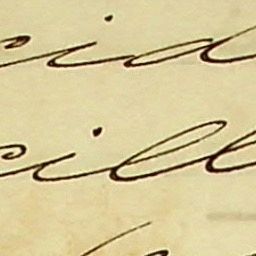 cid
cill